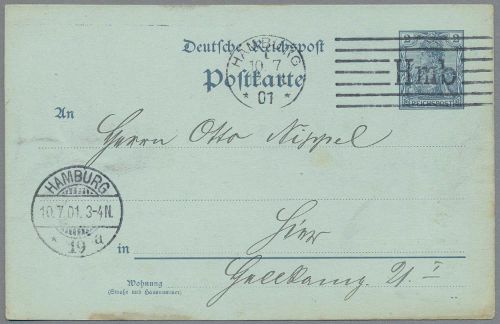 2 2
Deutsche Reichspost
Postkarte
HAMBURG
10 7
* 01 *
Hmb
REICHSPOST
An
Herrn Otto Nippel
HAMBURG
10.7.01. 3-4N.
* 19 a
in Hier
Wohnung
(Straße und Hausnummer)
21 I